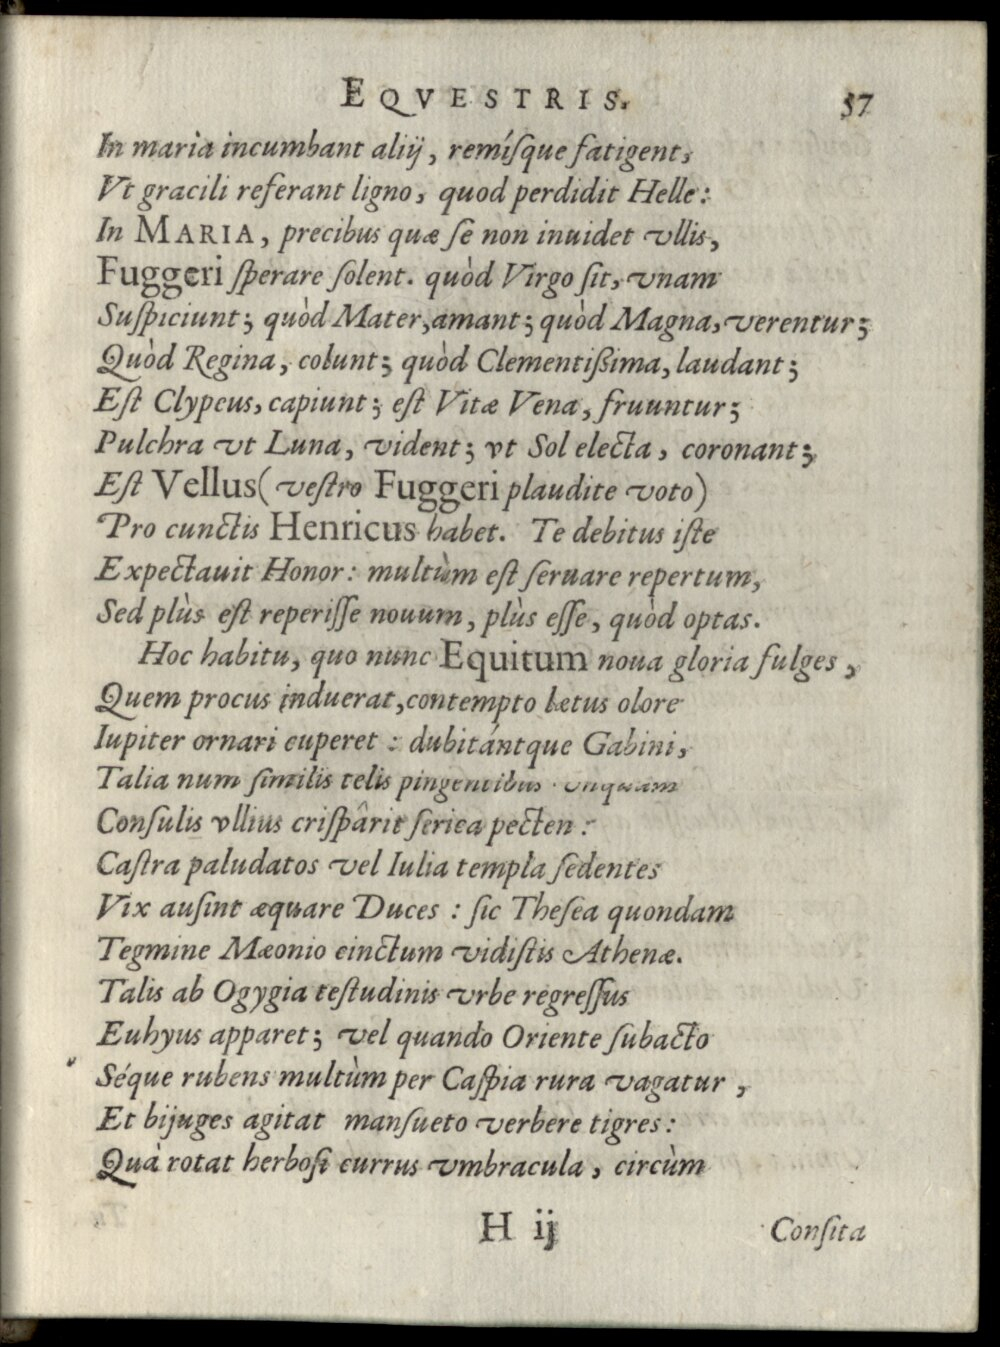 EQVESTRIS. 57
In maria incumbant aliij, remíſque fatigent,
Vt gracili referant ligno, quod perdidit Helle:
In MARIA, precibus quæ ſe non inuidet vllis,
Fuggeri ſperare ſolent. quòd Virgo ſit, vnam
Suſpiciunt; quòd Mater, amant; quòd Magna, verentur;
Quòd Regina, colunt; quòd Clementiſſima, laudant;
Eſt Clypeus, capiunt; eſt Vitæ Vena, fruuntur;
Pulchra vt Luna, vident; vt Sol electa, coronant;
Eſt Vellus (veſtro Fuggeri plaudite voto)
Pro cunctis Henricus habet. Te debitus iſte
Expectauit Honor: multùm eſt ſeruare repertum,
Sed plùs eſt reperiſſe nouum, plùs eſſe, quòd optas.
Hoc habitu, quo nunc Equitum noua gloria fulges,
Quem procus induerat, contempto lætus olore
Iupiter ornari cuperet: dubitántque Gabini,
Talia num ſimilis telis pingentibus vnquam
Conſulis vllius criſpârit ſerica pecten:
Caſtra paludatos vel Iulia templa ſedentes
Vix auſint æquare Duces: ſic Theſea quondam
Tegmine Mæonio cinctum vidiſtis Athenæ.
Talis ab Ogygia teſtudinis vrbe regreſſus
Euhyus apparet; vel quando Oriente ſubacto
Séque rubens multùm per Caſpia rura vagatur,
Et bijuges agitat manſueto verbere tigres:
Quà rotat herboſi currus vmbracula, circùm
H ij Conſita